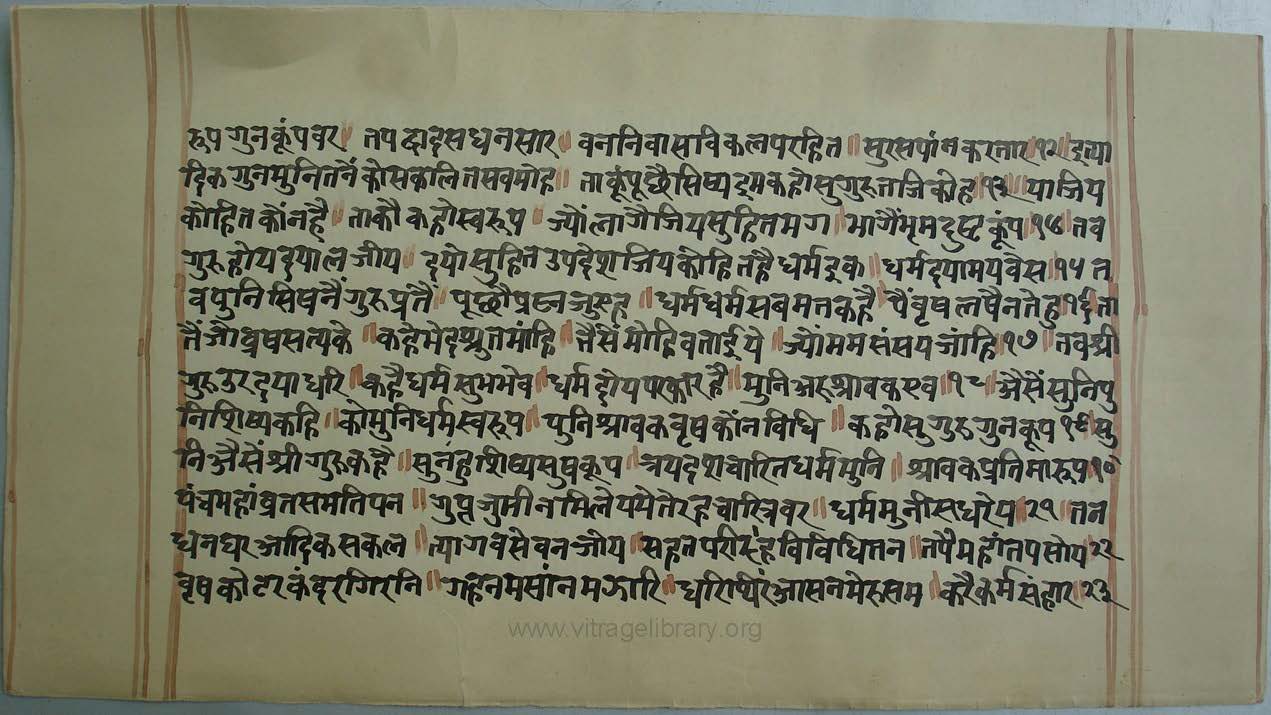 रूप गुनकूंपवर ॥ तप द्वादस घनसार ॥ वननिवासविकलपरहित ॥ सुरसपांनकरतार १२ ॥ इत्या
दिक गुनमुनितनैं कोसकालितसवमोह ॥ ताकूंपूछैसिष्यइमकहोसुगुरु ताजिकोह १३ ॥ याजिय
कोहितकौंनहै ॥ ताकौ कहोस्वरूप ॥ ज्यौंलागैजियसुहितमग ॥ भागैंभ्रमदुष्टकूंप १४ ॥ तव
गुरुहोयदयालजीय ॥ दयोसुहितउपदेशजियकोहितहैधर्मइक ॥ धर्मदयामयवेस १५ त
वपुनिसिषनैंगुरुप्रतैं ॥ पूछौप्रष्नजुऊह ॥ धर्मधर्मसबमतकहै ॥ पैंवृषलषैनतेहु १६ ता
तैंजोवृषसत्यके ॥ कहेभेदश्रुतमांहि ॥ तैसैंमोहिवताईये ॥ ज्यौंममसंसयजांहि १७ ॥ तवश्री
गुरुउरदयाधरि ॥ कहैधर्मसुभभेव ॥ धर्मदोयपरकारहै ॥ मुनिअरुश्रावकएव ॥ १८ ॥ अैसेंसुनिपु
निशिष्यकहि ॥ कोमुनिधर्मस्वरूप ॥ पुनिश्रावकवृषकौंनविधि ॥ कहोसुगुरुगुनकूप १९ ॥ सु
निअैसैंश्रीगुरुकहै ॥ सुनंहुशिष्यसुषकूप ॥ त्रयदशचारितधर्ममुनि ॥ श्रावकप्रतिमारूप २०
पंचमहांव्रतसमतिपन ॥ गुप्तजुतीनमिलेययेतेरहचारित्रवर ॥ धर्ममुनीसधरेय २१ ॥ तन
धनघरआदिकसकल ॥ त्यागवसेवनजीय ॥ सहतपरीसंहविविधितन ॥ तपैमहांतपसोय २२
वृषकोटरकंदरगिरनि ॥ गहनमसांनमझारि ॥ धरिथिरआसनमेरुसम ॥ करैकर्मसंहार २३
www.vitragelibrary.org